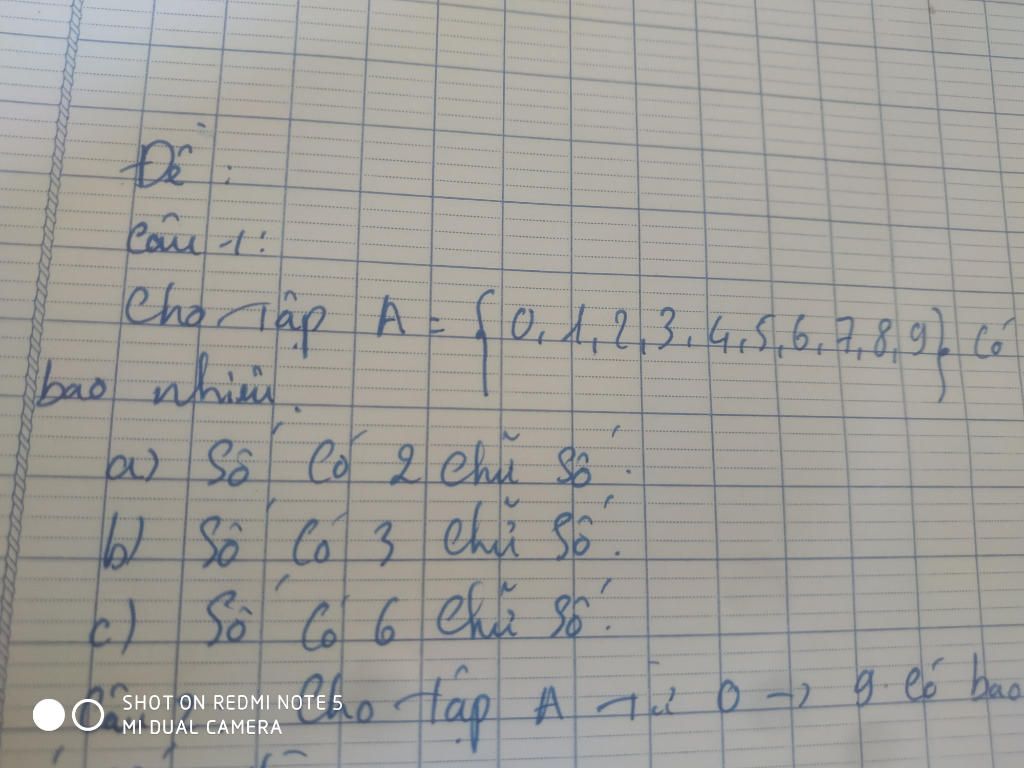 Đề :
Câu 1:
Cho tập A = { 0, 1, 2, 3, 4, 5, 6, 7, 8, 9}. Có
bao nhiêu.
a) Số Có 2 chữ số.
b) Số Có 3 chữ số.
c) Số Có 6 chữ số.
Cho tập A từ 0 → 9 có bao
SHOT ON REDMI NOTE 5
MI DUAL CAMERA